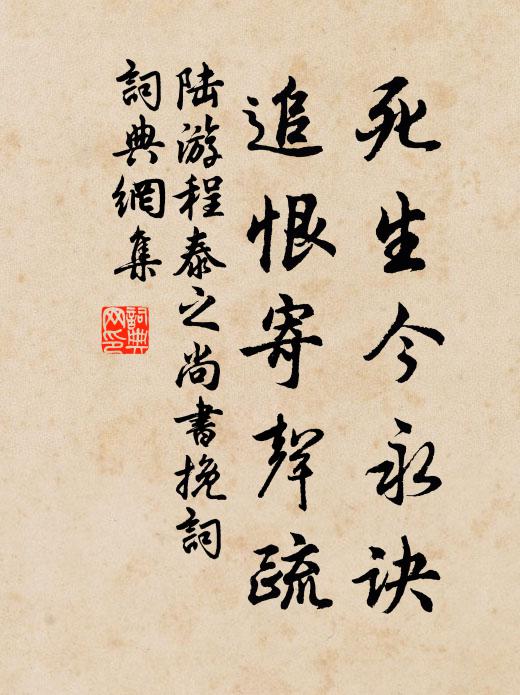 死生今永訣
追恨寄聲疏
陆游程泰之尚書挽詞
詞典網集
詞典网印